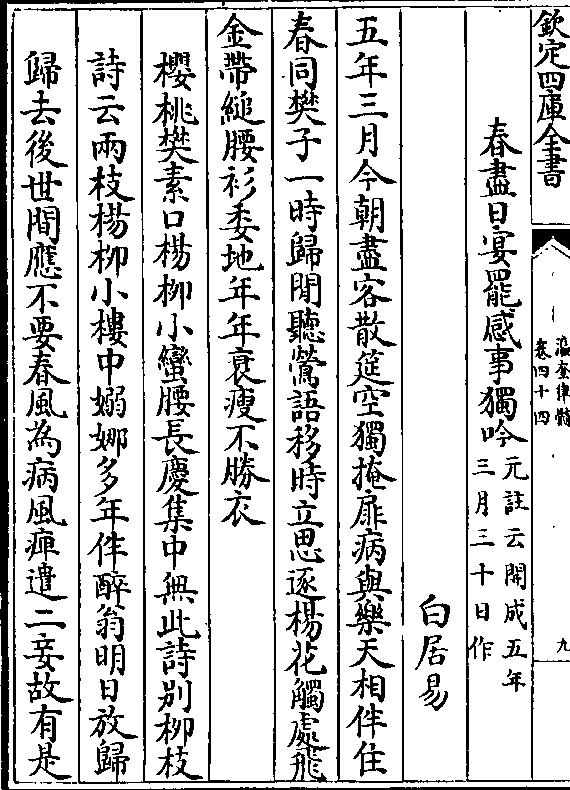 欽定四庫全書
瀛奎律髓
卷四十四
九
春盡日宴罷感事獨吟元註云開成五年
三月三十日作
白居易
五年三月今朝盡客散筵空獨掩扉病與樂天相伴住
春同樊子一時歸閒聽鶯語移時立思逐楊花觸處飛
金帶縋腰衫委地年年衰瘦不勝衣
櫻桃樊素口楊柳小蠻腰長慶集中無此詩别柳枝
詩云兩枝楊柳小樓中嫋娜多年伴醉翁明日放歸
歸去後世間應不要春風為病風痺遣二妾故有是